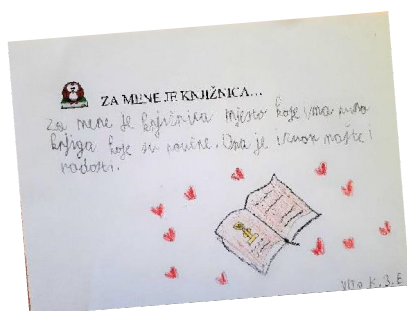 ZA MENE JE KNJIŽNICA...
Za mene je knjižnica mjesto koje ima puno
knjiga koje su poučne. Ona je izvor mašte i
radosti.
K. 3. E